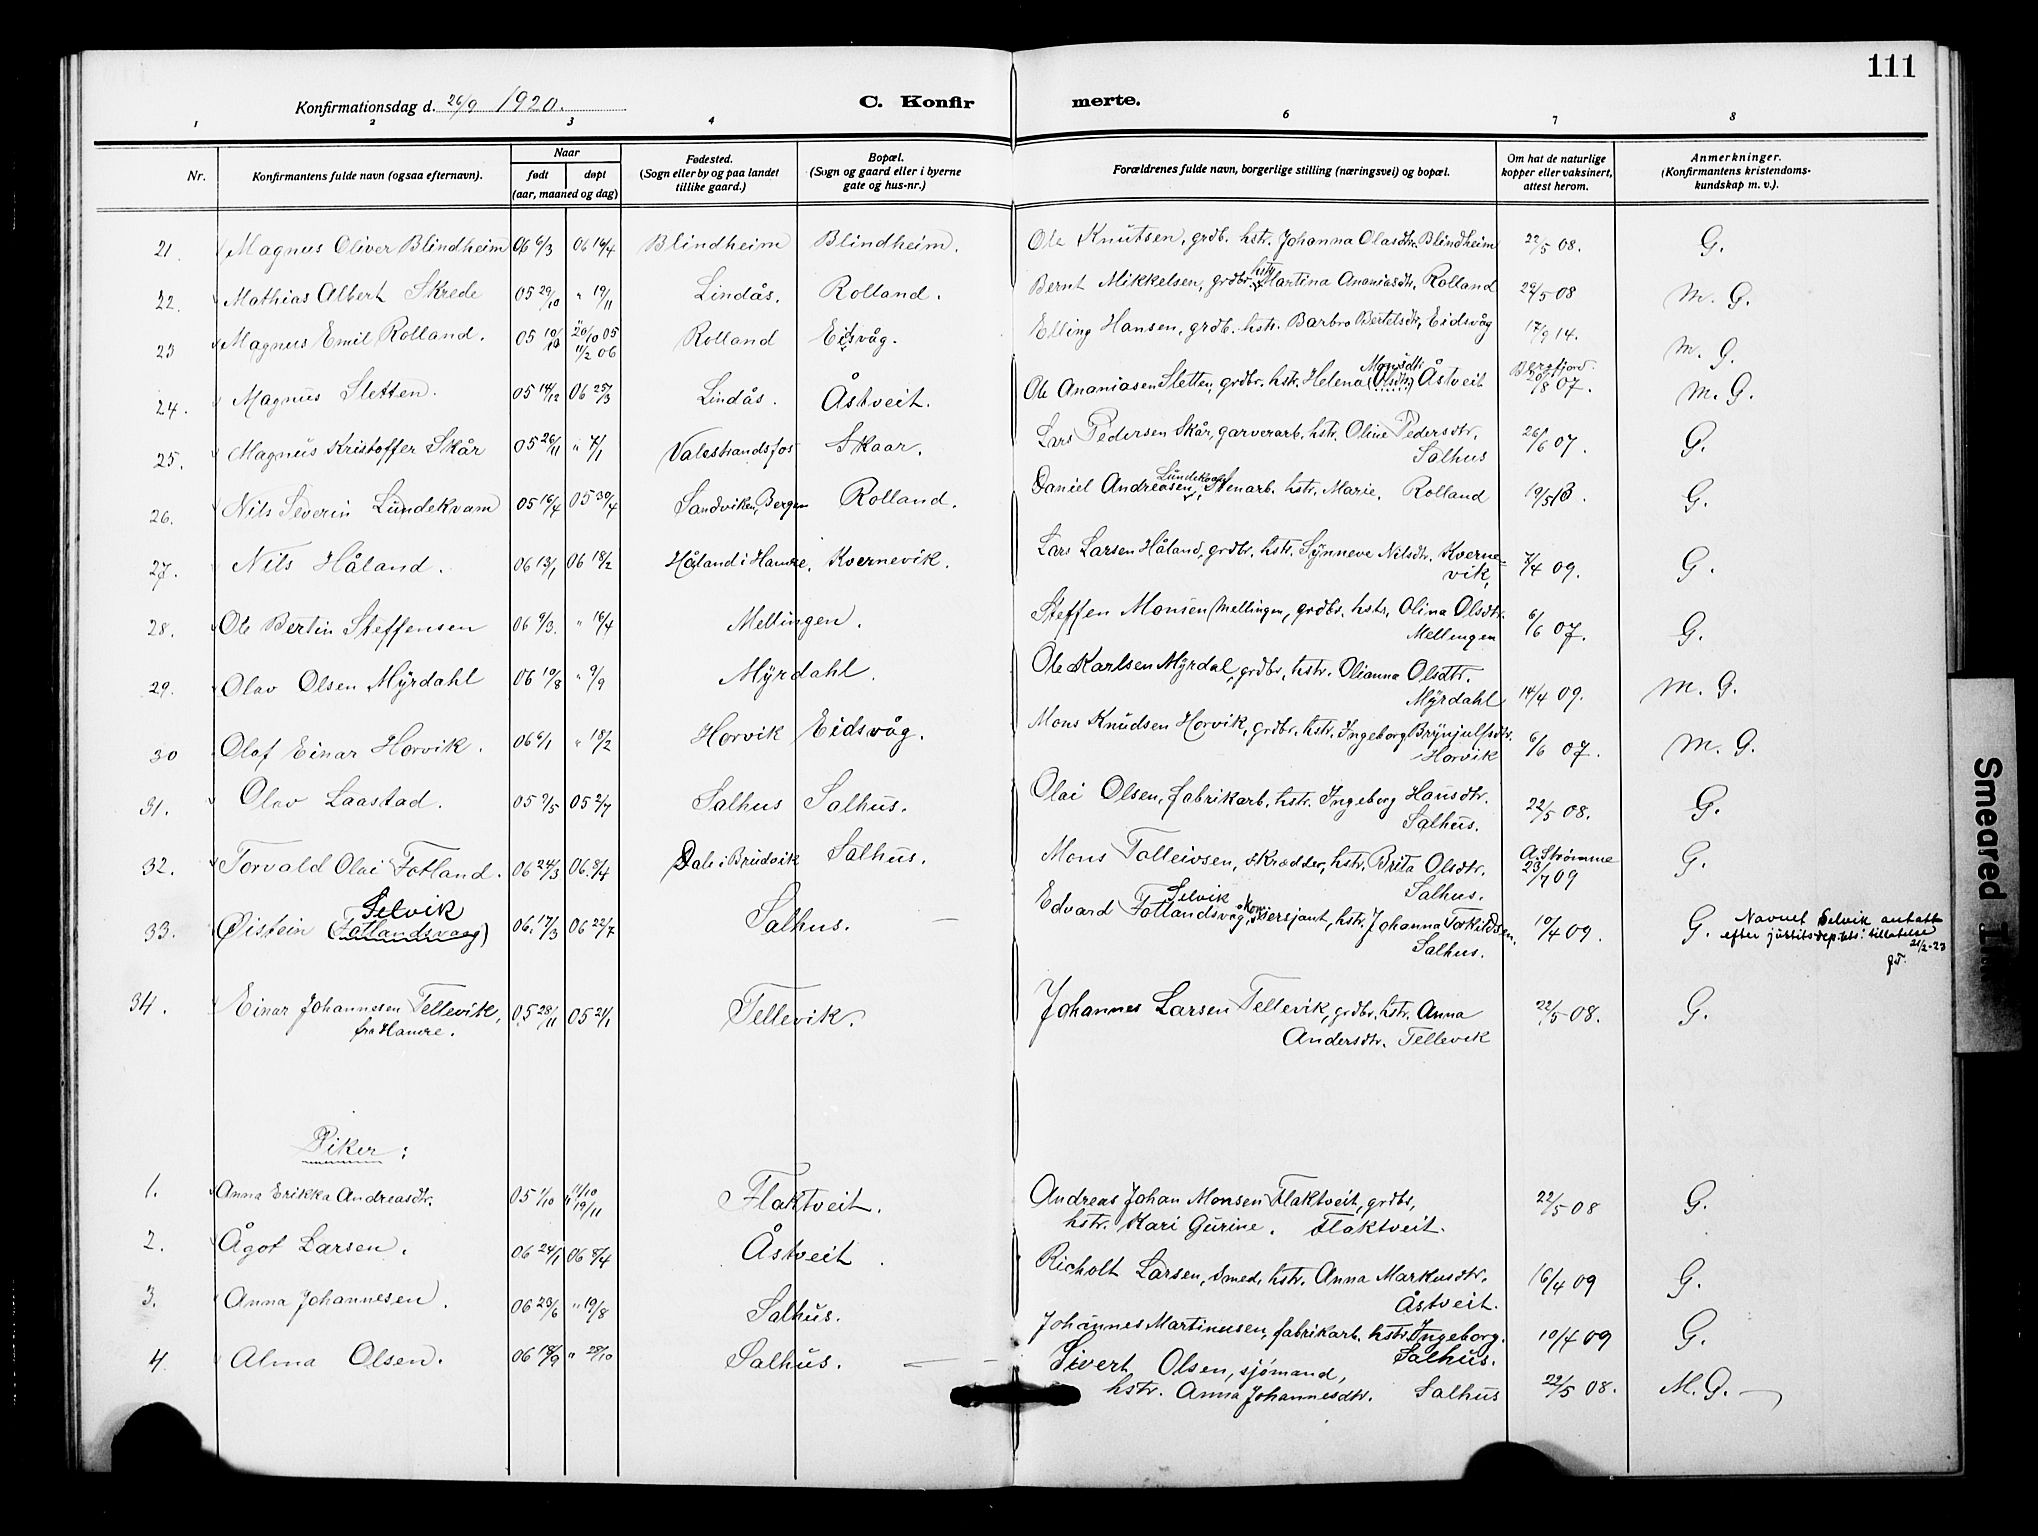 111
Konfirmationsdag d. 26/9 1920.
C. Konfirmerte.
1 2 3 4 6 7 8
Nr. Konfirmantens fulde navn (ogsaa efternavn). Naar født døpt (aar, maaned og dag) Fødested. (Sogn eller by og paa landet tillike gaard.) Bopæl. (Sogn og gaard eller i byerne gate og hus-nr.) Forældrenes fulde navn, borgerlige stilling (næringsvei) og bopæl. Om hat de naturlige kopper eller vaksinert, attest herom. Anmerkninger. (Konfirmantens kristendomskundskap m. v.).
21. Magnus Oliver Blindheim 06 6/3 06 16/4 Blindheim Blindheim. Ole Knutsen, grdb. hstr. Johanna Olasdtr. Blindheim 22/5 08. G.
22. Mathias Albert Skrede 05 29/10 " 19/11 Lindås. Rolland. Bernt Mikkelsen, grdbr. hstr. Martina Ananiasdtr. Rolland 29/5 08 M. G.
23 Magnus Emil Rolland. 05 10/10 20/10 05 11/2 06 Rolland Eidsvåg. Elling Hansen, grdb. hstr. Barbro Bertelsdtr, Eidsvåg 17/9 14. M. G.
24. Magnus Sletten. 05 14/12 06 25/3 Lindås. Åstveit. Ole Ananiasen Sletten, grdbr. hstr. Helena Monsdtr (Olsdtr) Åstveit 8 07. M. G.
25. Magnus Kristoffer Skår 05 26/11 " 7/1 Valestrandsfos Skaar. Lars Pedersen Skår, garverarb. hstr. Oline Pedersdtr. Salhus 26/6 07. G.
26. Nils Severin Lundekvam 05 16/4 05 30/4 Sandviken, Bergen Rolland. Daniel Andreasen Lundekvam, Stenarb. hstr. Marie. Rolland 19/5 13. G.
27. Nils Håland. 06 13/1 06 18/2 Håland i Hamre. Kvernevik. Lars Larsen Håland, grdbr. hstr. Synneve Nilsdtr. Kvernevik. 7/4 09. G.
28. Ole Bertin Steffensen 06 9/3. " 16/4 Mellingen. Steffen Monsen Mellingen, grdbr. hstr. Olina Olsdtr. Mellingen 6/6 07. G.
29. Olav Olsen Myrdahl 06 10/8 " 9/9 Myrdahl. Ole Karlsen Myrdal, grdbr, hstr. Olianna Olsdtr. Myrdahl 14/4 09. M. G.
30 Olof Einar Horvik. 06 6/1 " 18/2 Horvik Eidsvåg. Mons Knudsen Horvik, grdbr. hstr. Ingeborg Brynjulfsdtr. Horvik 6/6 07. M. G.
31. Olav Laastad. 05 7/5 05 2/7 Salhus Salhus. Olai Olsen, fabrikarb. hstr. Ingeborg Hansdtr. Salhus. 22/5 08. G.
32. Torvald Olai Fotland. 06 24/3 06. 8/4 Dale i Bruvik Salhus. Mons Tolleivsen, skrædder, hstr. Brita Olsdtr. Salhus. A. Strømme 23/7 09 G.
33. Øistein Selvik (Fotlandsvaag) 06. 17/3 06 22/7 Salhus. — Edvard Fotlandsvåg, Selvik Sersjant, hstr. Johanna Torkildsen. Salhus. 10/4 09. G. Navnet Selvik antatt efter justitsdep.ets tillatelse 21/2-23
34. Einar Johannesen Tellevik, fra Hamre. 05 28/11 05 21/1 Tellevik. Johannes Larsen Tellevik, grdbr. hstr. Anna Andersdtr. Tellevik 22/5 08. G.
Piker:
1. Anna Erikka Andreasdtr. 05 1/10 " 19/11 Flaktveit. Andreas Johan Monsen Flaktveit, grdbr, hstr. Kari Gurine. Flaktveit. 22/5 08 G.
2. Ågot Larsen. 06 24/1 06 8/4 Åstveit. Richolt Larsen, Smed, hstr. Anna Markusdtr. Åstveit. 16/4 09 G.
3. Anna Johannesen. 06 23/6 " 19/8 Salhus. Johannes Martinusen, fabrikarb. hstr. Ingeborg. Salhus. 10/4 09 G.
4. Alma Olsen. 06 18/9 " 28/10 Salhus. — Sivert Olsen, sjömand, hstr. Anna Johannesdtr. Salhus 22/5 08. M. G. —
Smeared